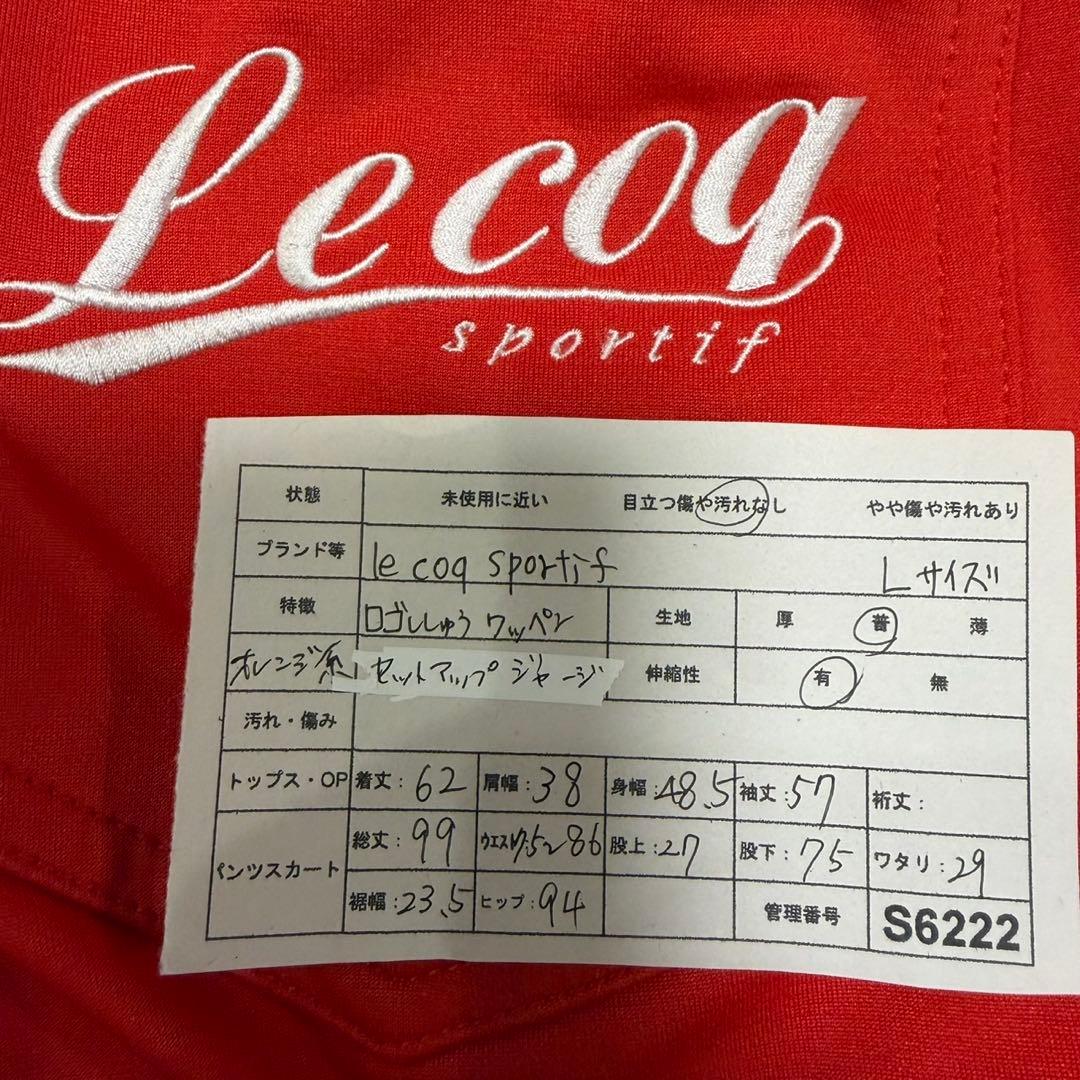 Le coq
sportif
状態 未使用に近い 目立つ傷や汚れなし やや傷や汚れあり
ブランド等 le coq sportif Lサイズ
特徴 ロゴししゅう ワッペン 生地 厚 普 薄
オレンジ系 セットアップ ジャージ 伸縮性 有 無
汚れ・傷み
トップス・OP 着丈: 62 肩幅: 38 身幅: 48.5 袖丈: 57 裄丈:
パンツスカート 総丈: 99 ウエスト: 75~86 股上: 27 股下: 75 ワタリ: 29
裾幅: 23.5 ヒップ: 94 管理番号 S6222